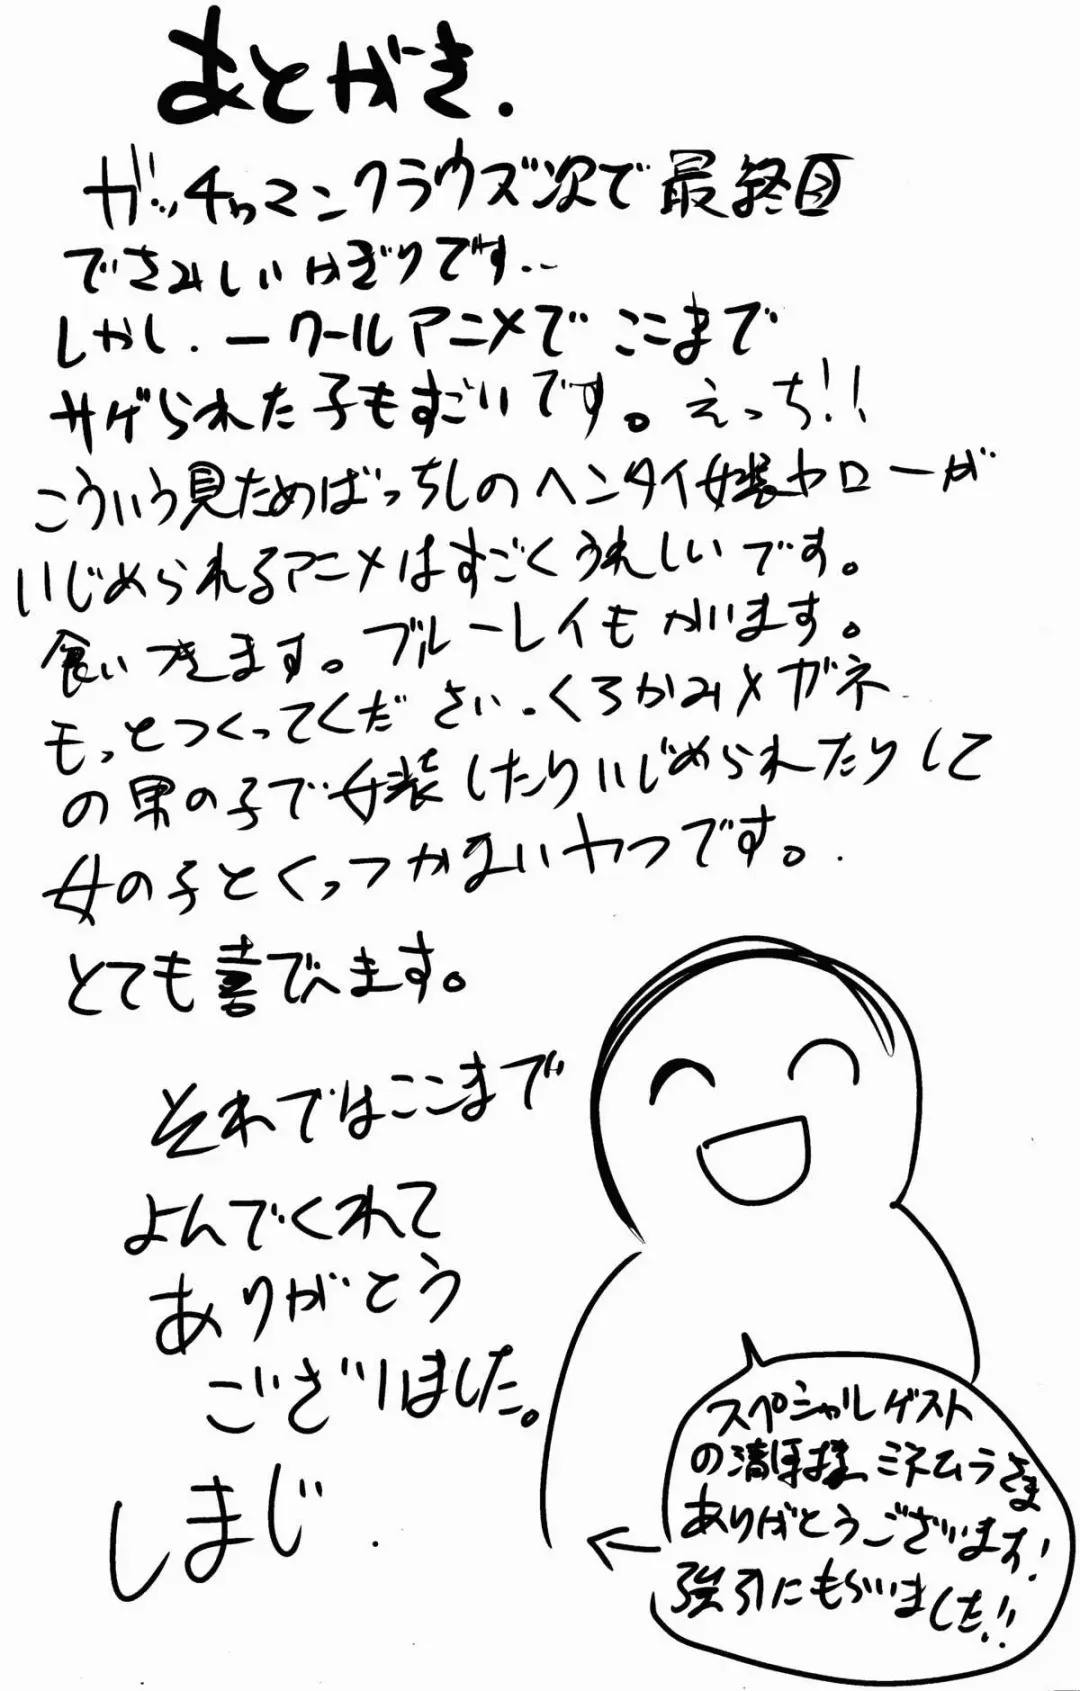 あとがき.
ガッチャマンクラウズ次で最終回
でさみしいかぎりです..
しかし.一クールアニメでここまで
サゲられた子もすごいです。えっち!!
こういう見ためばっちしのヘンタイ女装ヤローが
いじめられるアニメはすごくうれしいです。
食いつきます。ブルーレイもかいます。
もっとつくってください.くろかみメガネ
の男の子で女装したりいじめられたりして
女の子とくっつかないヤツです。
とても喜びます。
それではここまで
よんでくれて
ありがとう
ございました。
しまじ.
スペシャルゲスト
の清 様、ミネムラさま
ありがとうございます!
強引にもらいました!!